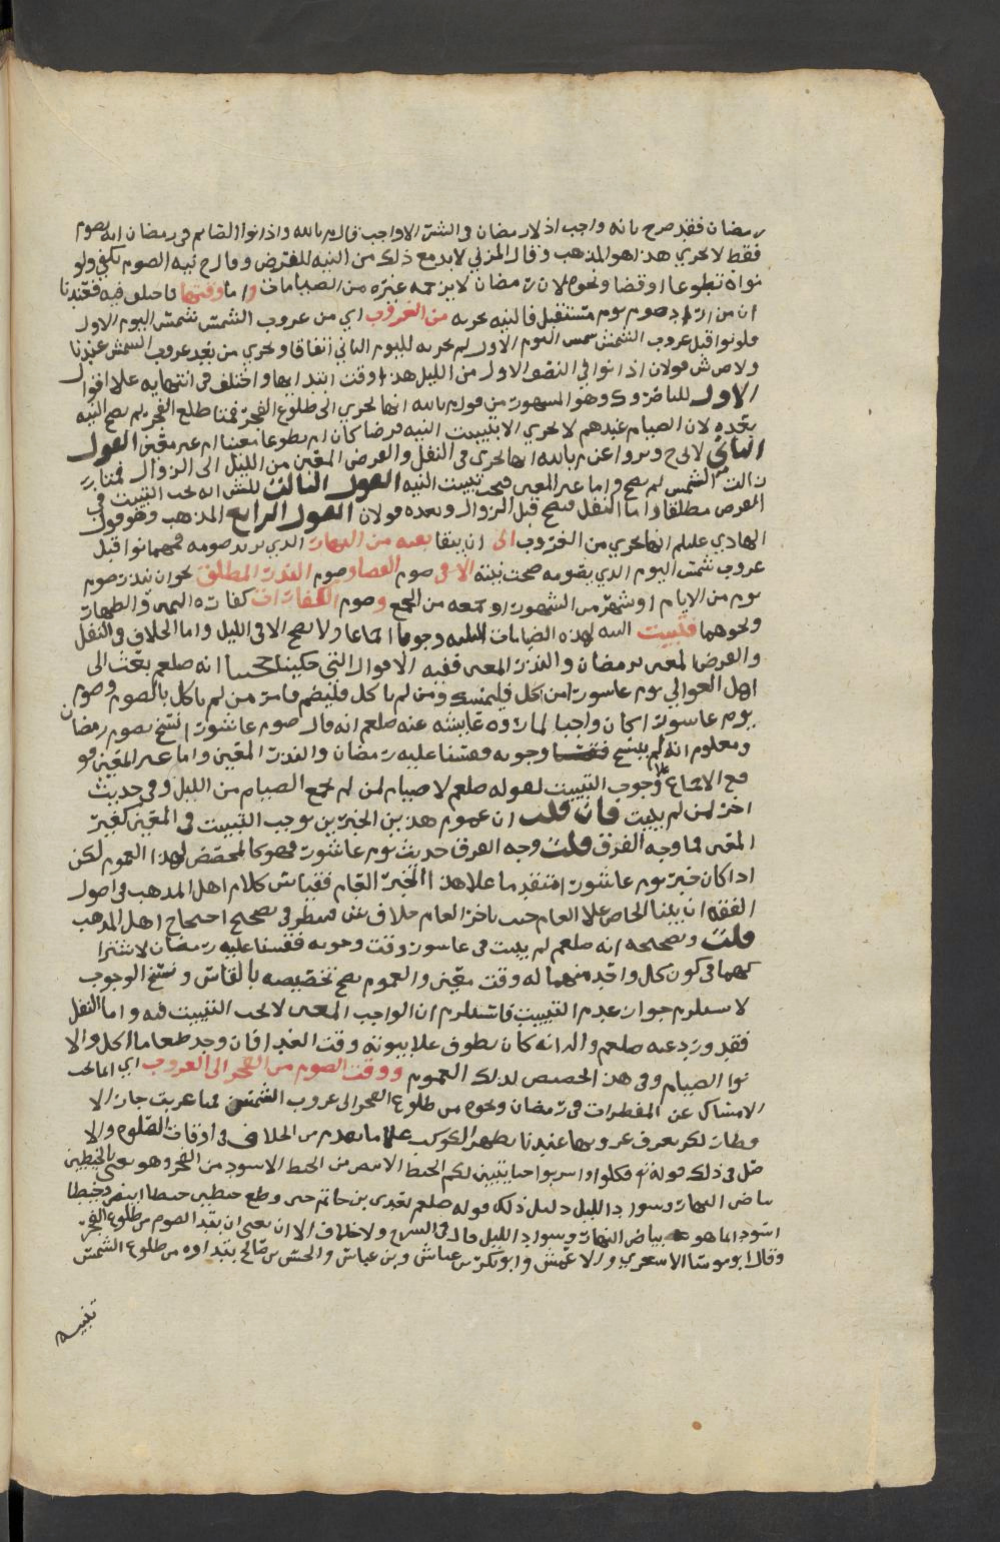 رمضان فقد صرح بانه واجب اذ لا رمضان في الشرع الا واجب قال م بالله واذا نوا الصايم في رمضان انه يصوم
فقط لا يجزي هذا هو المذهب وقال المزني لا بد مع ذلك من النيه للفرض وقال ح نيه الصوم تكفي ولو
نواه تطوعا او قضا ونحوه لان رمضان لا يزحمه غيره من الصيامات واما وقتها فاختلف فيه فعندنا
ان من اراد صوم يوم مستقبل فالنيه تجزيه من الغروب اي من غروب الشمس شمس اليوم الاول
فلو نوا قبل غروب الشمس شمس اليوم الاول لم تجزيه لليوم الثاني اتفاقا وتجزي من بعد غروب الشمس عندنا
ولاص ش قولان اذا نوا في النصف الاول من الليل هذا وقت ابتدايها واختلف في انتهايه علا اقوال
الاول للناصر وك وهو المشهور من قول م بالله انها تجزي الى طلوع الفجر فمتا طلع الفجر لم تصح النيه
بعده لان الصيام عندهم لا يجزي الا بتبييت النيه فرضا كان ام تطوعا معينا ام غير معين القول
الثاني لابي ح ويروا عن م بالله انها تجزي في النفل والفرض المعين من الليل الى الزوال فمتا
زالت الشمس لم تصح واما غير المعين فيجب تبييت النيه القول الثالث للش انه يجب التبييت في
الفرض مطلقا واما النفل فيصح قبل الزوال وبعده قولان القول الرابع المذهب وهو قول
الهادي عليلم انها تجزي من الغروب الى ان يبقا بقيه من النهار الذي يريد صومه فمهما نوا قبل
غروب شمس اليوم الذي يصومه صحت نيته الا في صوم القضا وصوم النذر المطلق نحو ان ينذر صوم
يوم من الايام او شهر من الشهور او جمعه من الجمع وصوم الكفارات كفارة اليمين والظهار
ونحوهما فتبييت النيه لهذه الصيامات وجوبا اجماعا ولا تصح الا في الليل واما الخلاف في النفل
والفرض المعين كرمضان والنذر المعين ففيه الاقوال التي حكينا انه صلعم بعث الى
اهل العوالي يوم عاشورا من اكل فليمسك ومن لم ياكل فليصم فامر من لم ياكل بالصوم وصوم
يوم عاشورا كان واجبا لما روته عايشه عنه صلعم انه قال صوم عاشورا نسخ بصوم رمضان
ومعلوم انه لم ينسخ وجوبه فقسنا عليه رمضان والنذر المعين واما غير المعين فو
قع الاجماع علا وجوب التبييت لقوله صلعم لا صيام لمن لم يجمع الصيام من الليل وفي حديث
اخر لمن لم يبيت فان قلت ان عموم هذين الخبرين يوجب التبييت في المعين كغير
المعين فما وجه الفرق قلت وجه الفرق حديث يوم عاشورا فهو كالمخصص لهذا العموم لكن
اذا كان خبر يوم عاشورا متقدما علا هذا الخبر العام فقياس كلام اهل المذهب في اصول
الفقه ان بنا الخاص علا العام حيث تاخر العام خلاف ش فينظر في تصحيح احتجاج اهل المذهب
قلت وتصحيحه انه صلعم لم يبيت في عاشورا وقت وجوبه فقسنا عليه رمضان لاشترا
كهما في كون كل واحد منهما له وقت معين والعموم يصح تخصيصه بالقياس ونسخ الوجوب
لا يستلزم جواز عدم التبييت فاستلزم ان الواجب المعين لا يجب التبييت فيه واما النفل
فقد ورد عنه صلعم واله انه كان يطوف علا بيوته وقت الغدا فان وجد طعاما اكل والا
نوا الصيام وفي هذا تخصيص لذلك العموم ووقت الصوم من الفجر الى الغروب اي انما يجب
الامساك عن المفطرات في رمضان ونحوه من طلوع الفجر الى غروب الشمس فمتا غربت جاز الا
فطار لكن يعرف غروبها عندنا بظهور الكوكب علا ما تقدم من الخلاف في اوقات الصلوه والا
صل في ذلك قوله تع فكلوا واشربوا حتا يتبين لكم الخيط الابيض من الخيط الاسود من الفجر وهو يعني بالخيطين
بياض النهار وسواد الليل دليل ذلك قوله صلعم لعدي بن حاتم حين وضع خيطين خيطا ابيض وخيطا
اسود انما هو بياض النهار وسواد الليل قال في الشرح ولا خلاف الان يعني ان بعد الصوم من طلوع الفجر
وقال ابو موسا الاشعري والاعمش وابو بكر بن عياش وبن عباس والحسن بن صالح بعد اوه من طلوع الشمس
تنبيه